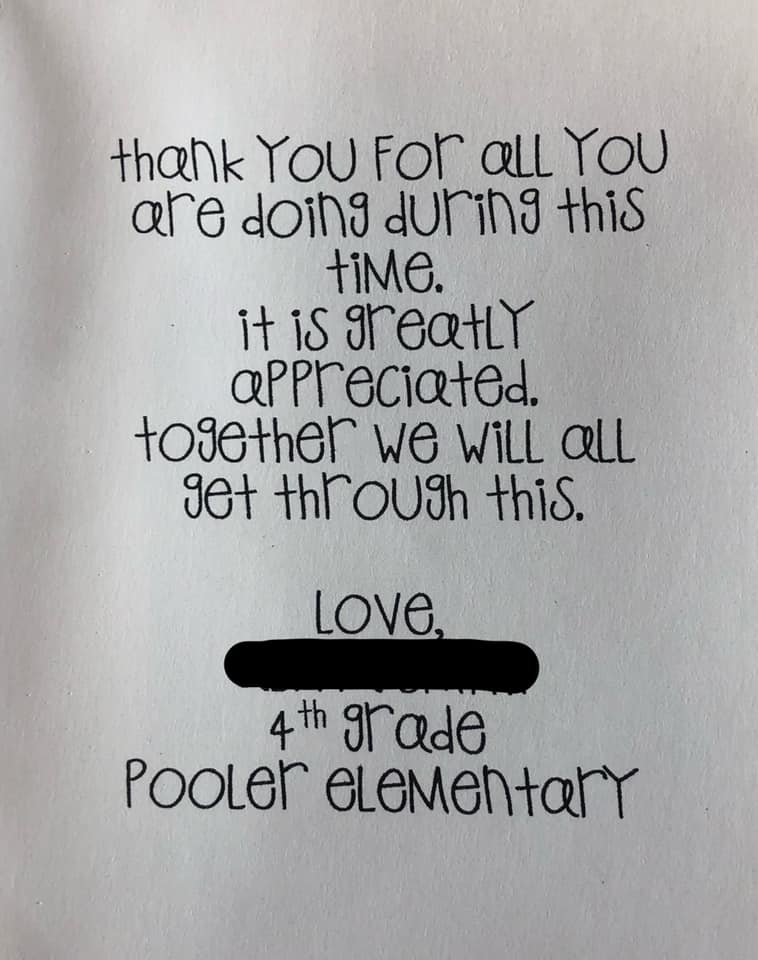 thank YOU FOr aLL YOU
are doing dUring this
tiMe.
it is greatLY
aPPreciated.
together we wiLL aLL
get throUgh this.
LOve,
4th grade
POOLer eLeMentarY